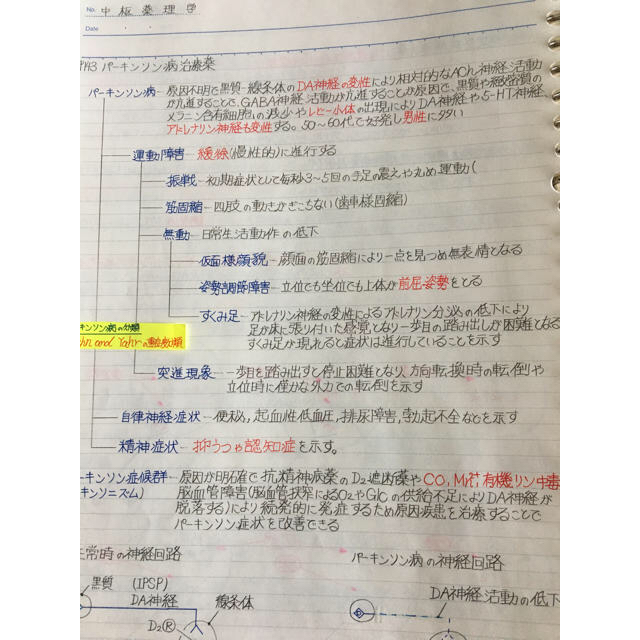 No. 中枢薬理学
Date
P43 パーキンソン病治療薬
パーキンソン病 原因不明で黒質-線条体のDA神経の変性により相対的なACh神経活動
が亢進することで、GABA神経活動が亢進することが原因で、黒質や線条体の
メラニン含有細胞の減少やレビー小体の出現によりDA神経や5-HT神経、
アドレナリン神経も変性する。50〜60代で好発し男性に多い
運動障害 緩徐(慢性的)に進行する
振戦 初期症状として毎秒3〜5回の手足の震えや丸め運動(
筋固縮 四肢の動きがぎこちない(歯車様固縮)
無動 日常生活動作の低下
仮面様顔貌 顔面の筋固縮により一点を見つめ無表情となる
姿勢調節障害 立位も坐位も上体が前屈姿勢をとる
すくみ足 アドレナリン神経の変性によるアドレナリン分泌の低下により
足が床に張り付いた感覚となり一歩目の踏み出しが困難となる
すくみ足が現れると症状は進行していることを示す
キンソン病の分類
hn and Yahrの重症度分類
突進現象 一歩目を踏み出すと停止困難となり、方向転換時の転倒や
立位時に僅かな外力での転倒を示す
自律神経症状 便秘、起立性低血圧、排尿障害、勃起不全などを示す
精神症状 抑うつや認知症を示す。
ーキンソン症候群 原因が明確で抗精神病薬のD₂遮断薬やCO、Mn、有機リン中毒
キンソニズム) 脳血管障害(脳血管狭窄によるO₂やGlcの供給不足によりDA神経が
脱落する)により続発的に発症するため原因疾患を治療することで
パーキンソン症状を改善できる
正常時の神経回路
パーキンソン病の神経回路
黒質 (IPSP)
DA神経 線条体
DA神経活動の低下
D₂Ⓡ